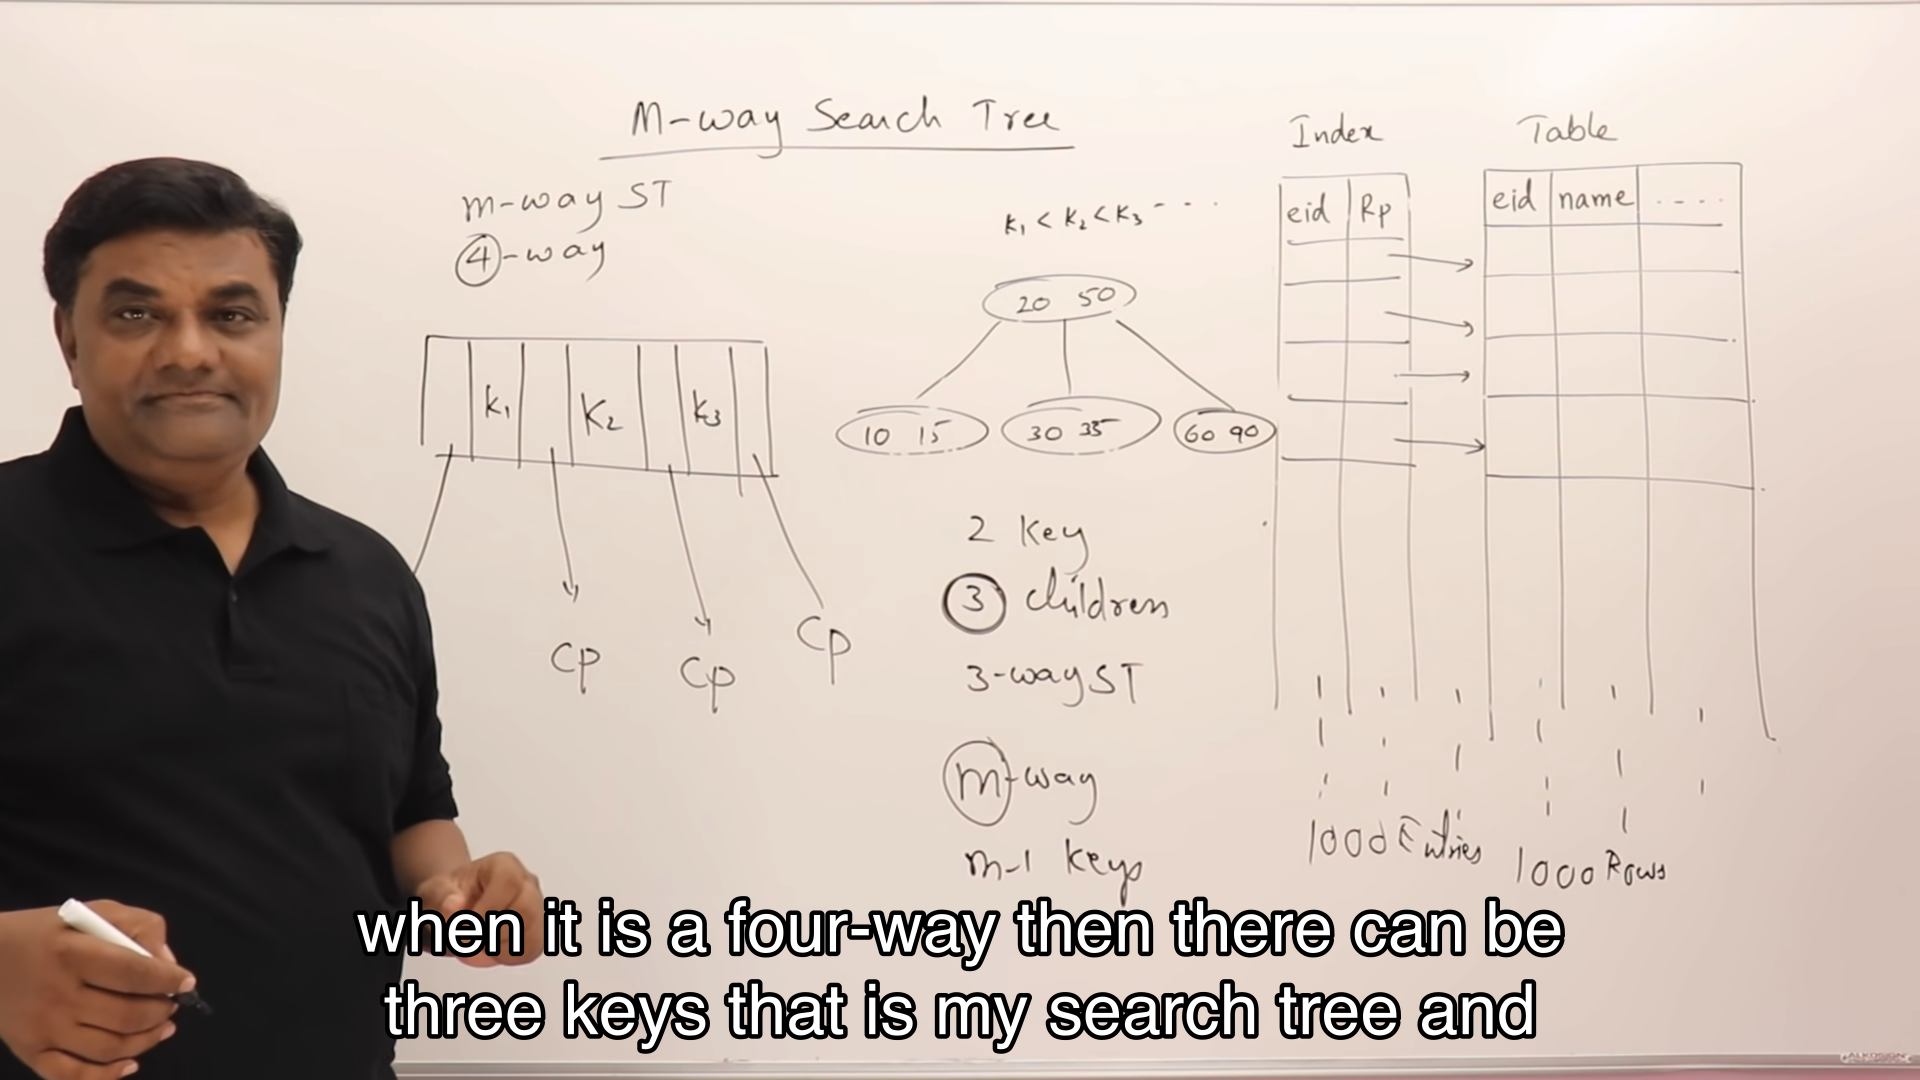 M-way Search Tree
m-way ST
4-way
K₁ K₂ K₃
CP CP CP
K₁ < K₂ < K₃ - - - -
20 50
10 15
30 35
60 90
2 Key
3 children
3-way ST
m-way
m-1 Keys
Index
eid Rp
1000 Entries
Table
eid name ----
1000 Rows
when it is a four-way then there can be
three keys that is my search tree and